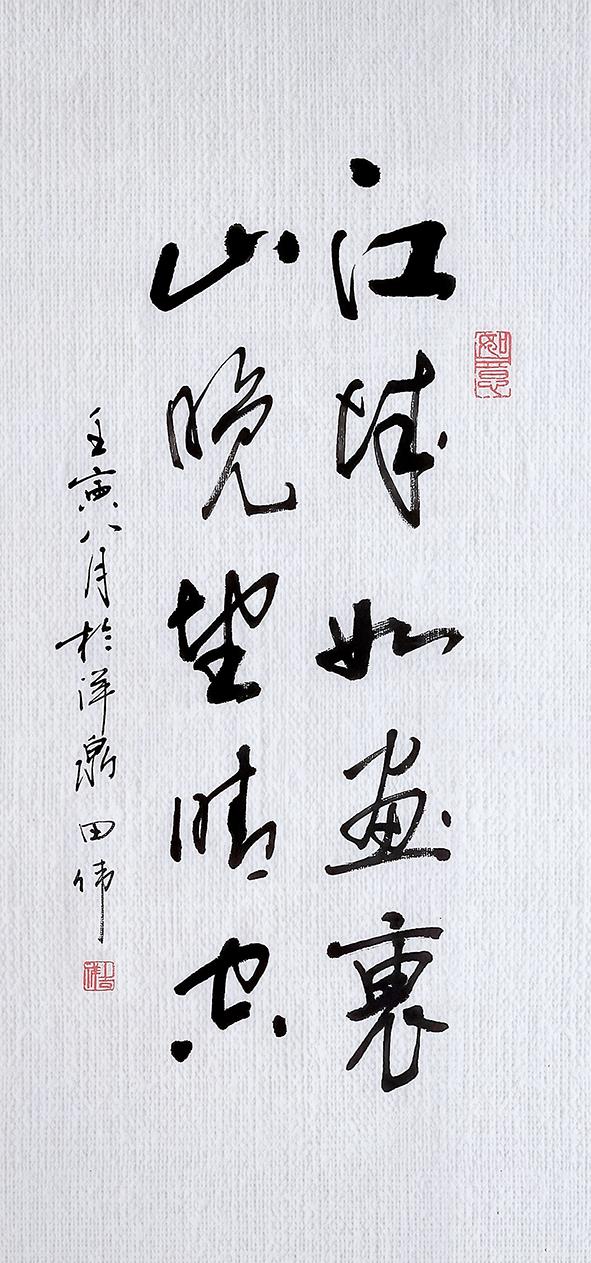 如意
江城如畫裏
山晚望晴空
壬寅八月於洋 田伟